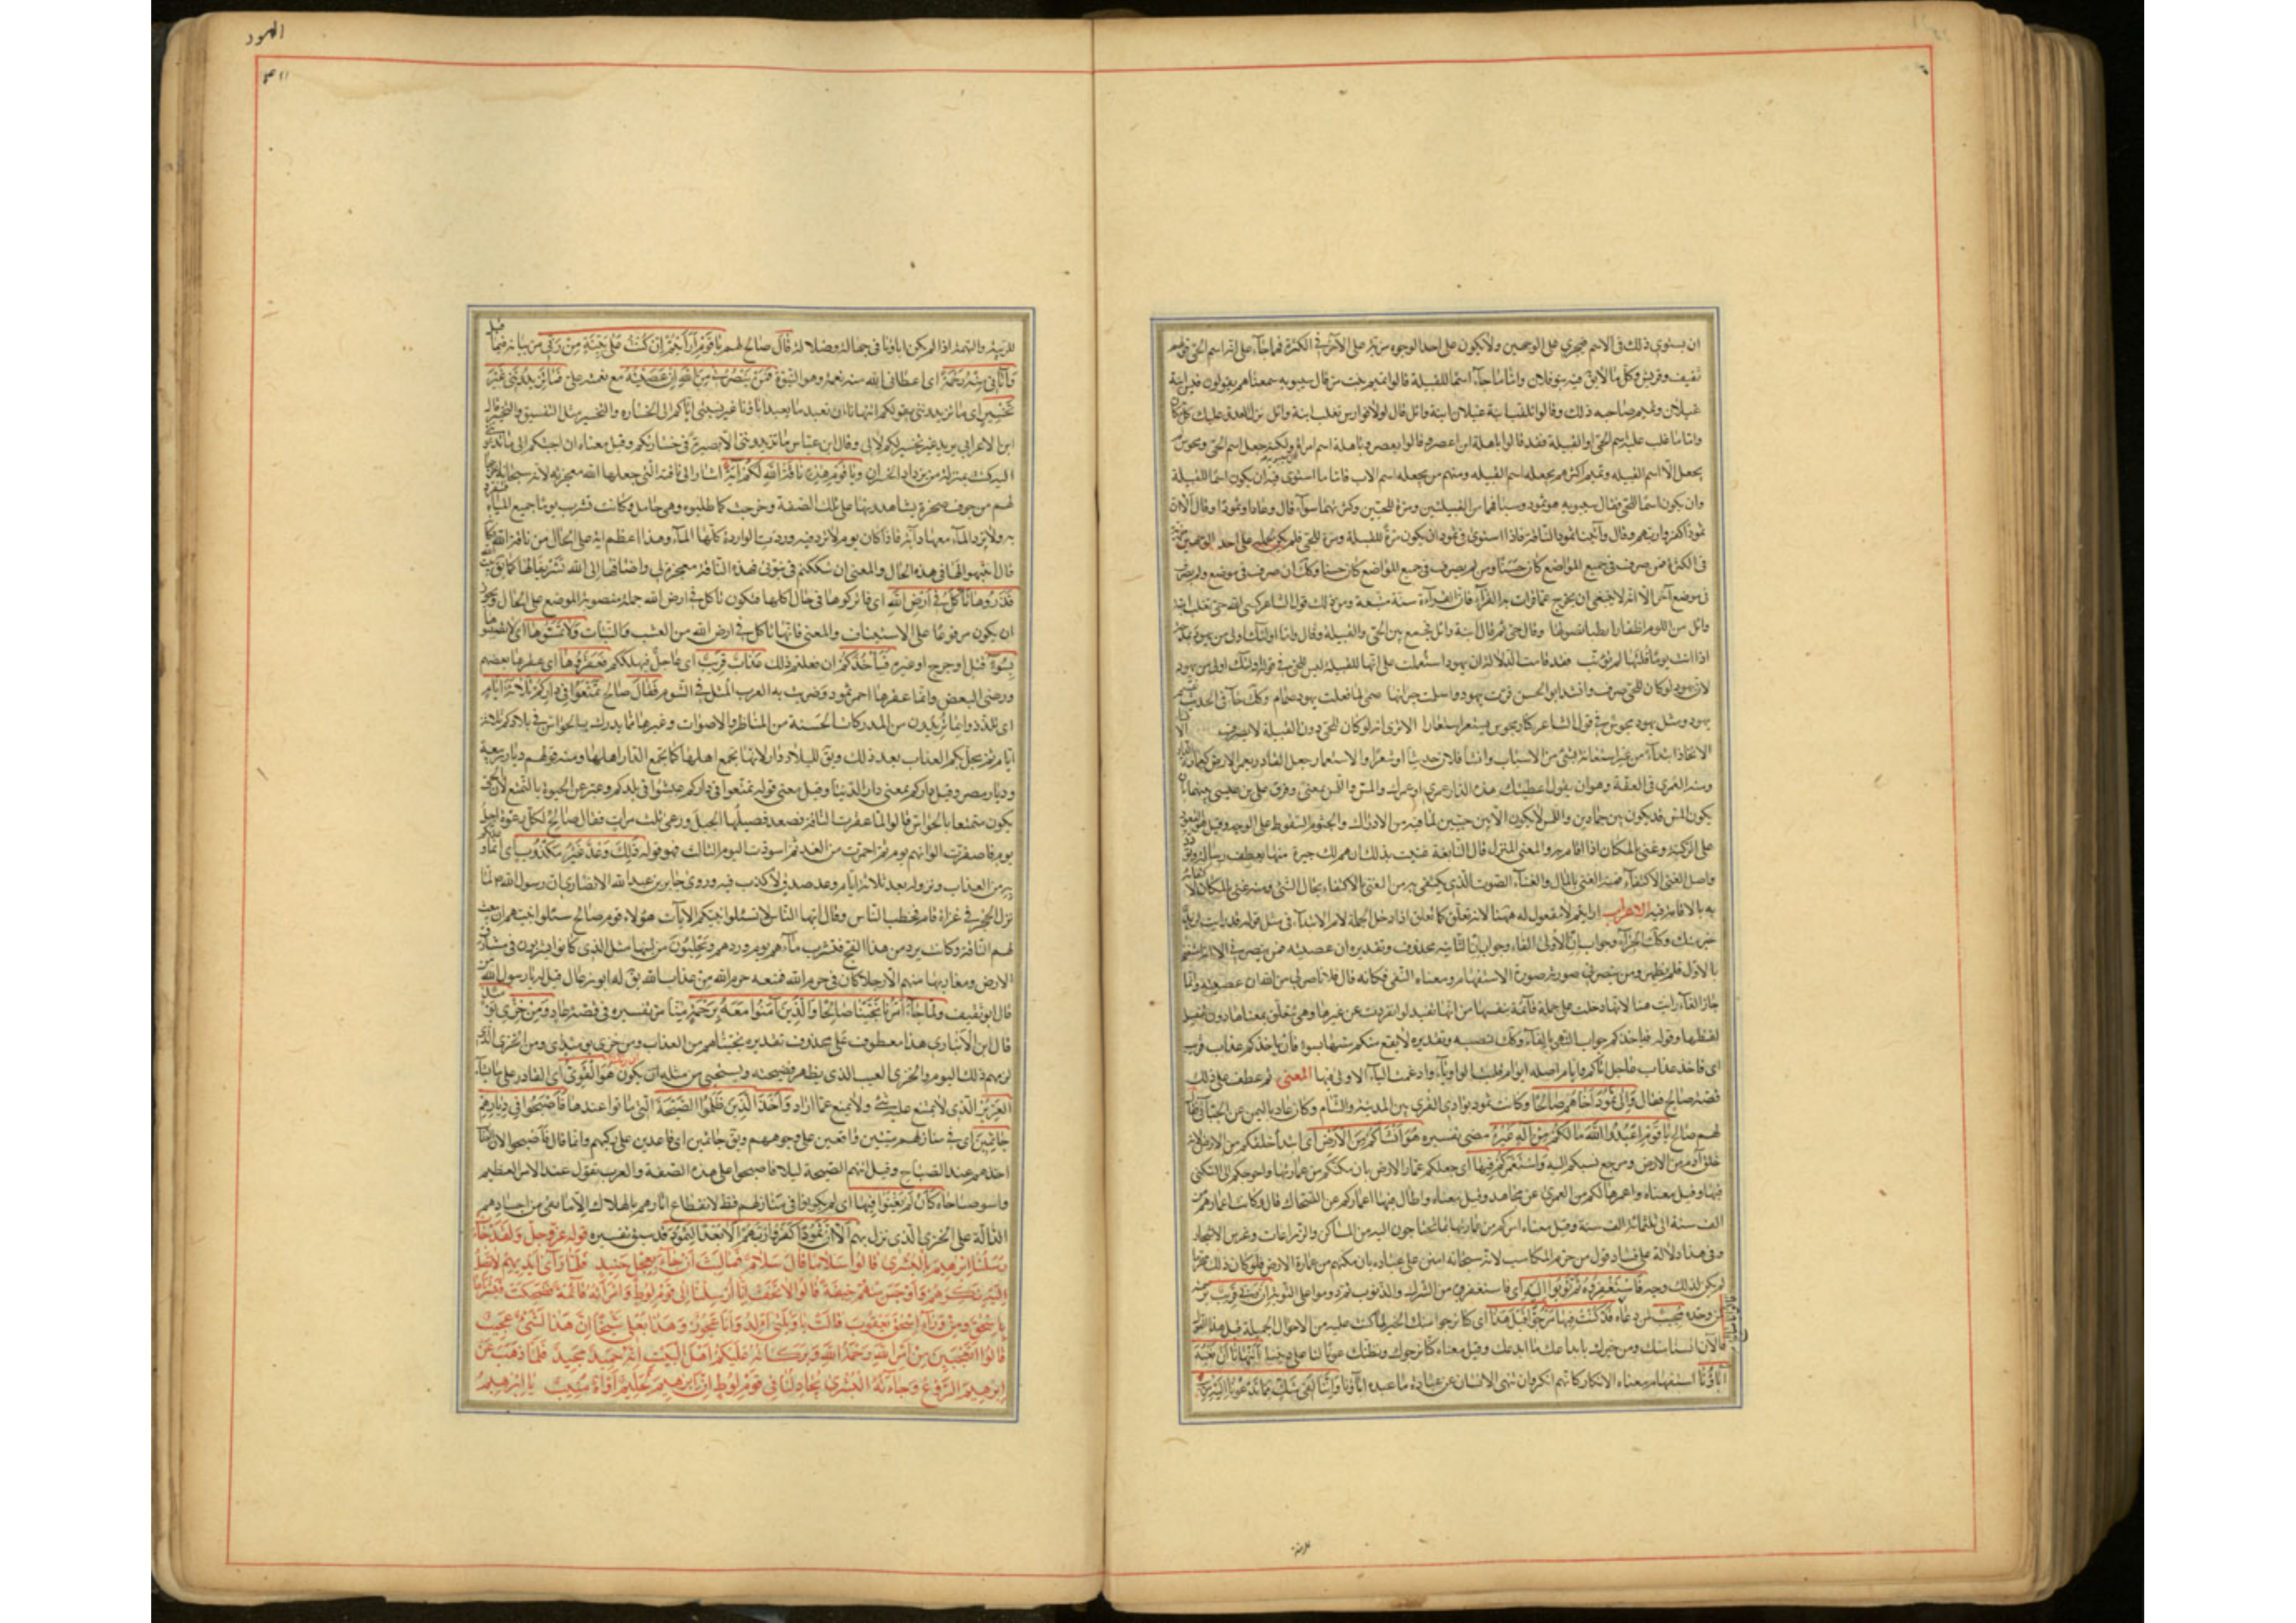 ان يستوي ذلك في الاسم فيجري على الوجهين ولا يكون على احد الوجوه مزية على الآخر في الكثرة فما جاء على انه اسم الحي قولهم
ثقيف وقريش وكل ما لا يق فيه بنو فلان واما ما جاء اسما للقبيلة قالوا تميم بنت مر قال سيبويه سمعناهم يقولون قيس ابنة
عيلان وتميم صاحبه ذلك وقالوا تغلب ابنة وائل قال لولا فوارس تغلب ابنة وائل نزل العدو عليك كل مكان
واما ما غلب عليه اسم الحي او القبيلة فقد قالوا باهلة ابن اعصر وقالوا يعصر وباهلة اسم امراة ولكنه جعل اسم الحي ومجوس
يجعل الا اسم القبيله وتميم اكثرهم يجعله اسم القبيله ومنهم من يجعله اسم الاب فاما ما استوى فيه ان يكون اسما للقبيلة
وان يكون اسما للحي فقال سيبويه هو ثمود وسبا فهما مرة للقبيلتين ومرة للحيين وكثرتهما سوآء قال وعادا وثمودا وقال الا ان
ثمودا كفروا ربهم وقال وآتينا ثمود الناقة فاذا استوى في ثمود ان يكون مرة للقبيلة ومرة للحي فلم يكن لحمله على احد الوجهين مزية
في الكثرة فمن صرف في جميع المواضع كان حسنا ومن لم يصرف في جميع المواضع كان حسنا وكك ان صرف في موضع ولم يصرف
في موضع آخر الا انه لا ينبغي ان يخرج عما قرات به القرآء فان القرآءة سنة متبعة ومن ذلك قول الشاعر كسى الله حي تغلب ابنة
وائل من اللوم اظفارا بطيئا نصولها وقال حي ثم قال ابنة وائل فجمع بين الحي والقبيلة وقال واما اولئك اولى من يهود بمدحة
اذا انت يوما قلتها لم تؤنب فقد قامت الدلالة ان يهود استعملت على انها للقبيلة ليس للحي في قوله اولئك اولى من يهود
لان يهود لو كان للحي صرف وانشد ابو الحسن فرت يهود واسلمت جيرانها صمى لما فعلت يهود صمام وكك جآء في الحديث
يهود ومثل يهود مجوس في قول الشاعر كنار مجوس يستعر استعارا الا ترى انه لو كان للحي دون القبيلة لانصرف
الايجاد ابتدآء من غير استعانة بشئ من الاسباب وانشا فلان حديثا او شعرا والاستعمار جعل القادر يعمر الارض كعمارة
ومنه العمرى في الفقة وهو ان يقول اعطيتك هذه الدار عمري او عمرك والمس واللمس بمعنى وفرق علي بن عيسى بينهما بان
يكون المس قد يكون بين جمادين واللمس لا يكون الا بين حيين لما فيه من الادراك والجثوم السقوط على الوجه وقيل هو القعود
على الركبة وغني بالمكان اذا اقام به والمغنى المنزل قال النابغة غنيت بذلك اذ هم لك جيرة منها بعطف رسالة وتودد
واصل الغنى الاكتفاء ومنه الغنى بالمال والغنآء الصوت الذي يكتفى به من الغنى الاكتفاء بحال الشئ ومنه غني بالمكان لاكتفائه
به بالاقامة فيه الاعراب ارايتم لا مفعول له ههنا لانه تعلق كما تعلق اذا دخل الجملة لام الابتدآء في مثل قوله قد رايت لزيد
خير منك وكك الجزآء وجواب ان الاولى الفاء وجواب ان الثانيه محذوف وتقديره ان عصيته فمن ينصرني الا انه استغنى
بالاول فلم يظهر ومن ينصرني صورته صورة الاستفهام ومعناه النفي فكانه قال فلا ناصر لي من الله ان عصيته وانما
جاز الغآء رايت هنا لانها دخلت على جملة قائمة بنفسها من انها تفيد لو انفردت عن غيرها وهي تتعلق بمعناها دون تفصيل
لفظها وقوله فياخذكم جواب النهي بالفآء وكك نصبه وتقديره لا يقع منكم مسها بسوء فان ياخذكم عذاب قريب
اى فاخذ عذاب عاجل اياكم وايام اصله ايوام فقلبت الواو يآء وادغمت اليآء الاولى فيها المعنى ثم عطف على ذلك
قصة صالح فقال وَاِلى ثَمُودَ اَخاهُم صالِحًا وكانت ثمود بوادي القرى بين المدينة والشام وكان عاد باليمن عن الجبآئي قال
لهم صالح يا قَوْمِ اعْبُدُوا اللّهَ ما لَكُمْ مِنْ اِلهٍ غَيْرُهُ مضى تفسيره هُوَ اَنْشَاَكُمْ مِنَ الْاَرْضِ اى ابتدا خلقكم من الارض لانه
خلق آدم من الارض ومرجع نسبكم اليه وَاسْتَعْمَرَكُمْ فِيها اى جعلكم عمار الارض بان مكنكم من عمارتها واحوجكم الى السكنى
فيها وقيل معناه واعمرها لكم من العمرى عن مجاهد وقيل معناه واطال فيها اعماركم عن الضحاك قال وكانت اعمارهم من
الف سنة الى ثلثمائة الف سنة وقيل معناه امركم من عمارتها بما تحتاجون اليه من المساكن والزراعات وغرس الاشجار
وفي هذا دلالة على فساد قول من حرم المكاسب لانه سبحانه امتن على عباده بان مكنهم من عمارة الارض فلو كان ذلك محرما
لم يكن لذلك وجه فَاسْتَغْفِرُوهُ ثُمَّ تُوبُوا اِلَيْهِ اى فاستغفروه من الشرك والذنوب ثم دوموا على التوبة اِنَّ رَبِّي قَرِيبٌ برحمته
لمن وحده مُجِيبٌ لمن دعاه قَدْ كُنْتَ فِينا مَرْجُوًّا قَبْلَ هذا اى كنا نرجو منك الخير لما كنت عليه من الاحوال الجميلة قبل هذا القول
قالوا يا صالح
فالآن ايسنا منك ومن خيرك بابداعك ما ابدعت وقيل معناه كنا نرجوك ونظنك عونا لنا على ديننا اَتَنْهانا اَنْ نَعْبُدَ
آباؤُنا استفهام معناه الانكار كانهم انكروا ان ينهى الانسان عن عبادة ما عبده آباؤنا وَاِنَّنا لَفِي شَكٍّ مِمّا تَدْعُونا اِلَيْهِ مُرِيبٍ
الهود
للريبة والتهمة اذا لم يكن اباؤنا في جهالة وضلالة قالَ صالح لهم يا قَوْمِ اَرَاَيْتُمْ اِنْ كُنْتُ عَلى بَيِّنَةٍ مِنْ رَبِّي مر بيانه فيما قبل
وَآتانِي مِنْهُ رَحْمَةً اى اعطانى الله منه نعمة وهو النبوة فَمَنْ يَنْصُرُنِي مِنَ اللّهِ اِنْ عَصَيْتُهُ مع نعمته على فَما تَزِيدُونَنِي غَيْرَ
تَخْسِيرٍ اى ما تزيدونني بقولكم اتنهانا ان نعبد ما يعبد اباؤنا غير نسبتي اياكم الى الخسارة والتخسير مثل التفسيق والتفجير قال
ابن الاعرابي يريد غير تخسير لكم لا لي وقال ابن عباس ما تزيدونني الا بصيرة في خسارتكم وقيل معناه ان اجبتكم الى ما تدعونني
اليه كنت بمنزلة من يزداد الخسران ويا قَوْمِ هذِهِ ناقَةُ اللّهِ لَكُمْ آيَةً اشار الى ناقته التي جعلها الله معجزته لانه سبحانه اخرجها
لهم من جوف صخرة يشاهدونها على تلك الصفة وخرجت كما طلبوه وهى حامل وكانت تشرب يوما جميع المياه فتنفرد
به ولا يرد المآء معها دآبة فاذا كان يوم لا ترد فيه وردت الواردة كلها المآء وهذا اعظم اية على الحال من ناقة الله كانه
قال انتبهوا لها في هذه الحال والمعنى ان شككتم في نبوتي فهذه الناقة معجزة لي واضافها الى الله تشريفا لها كما يق بيت الله
فَذَرُوها تَاْكُلْ فِي اَرْضِ اللّهِ اى فاتركوها في حال اكلها فتكون تاكل في ارض الله جملة منصوبة الموضع على الحال ويجوز
ان يكون مرفوعا على الاستيناف والمعنى فانها تاكل في ارض الله من العشب والنبات وَلا تَمَسُّوها اى لا تصيبوها
بِسُوءٍ قتل او جرح او غيره فَيَاْخُذَكُمْ ان فعلتم ذلك عَذابٌ قَرِيبٌ اى عاجل فيهلككم فَعَقَرُوها اى عقرها بعضهم
ورضى البعض وانما عقرها احمر ثمود وضربت به العرب المثل في الشوم فَقالَ صالح تَمَتَّعُوا فِي دارِكُمْ ثَلاثَةَ اَيّامٍ
اى تلذذوا بما تريدون من المدركات الحسنة من المناظر والاصوات وغيرها مما يدرك بالحواس في بلادكم ثلاثة
ايام ثم يحل بكم العذاب بعد ذلك ويق للبلاد دار لانها تجمع اهلها كما تجمع الدار اهلها ومنه قولهم ديار ربيعة
وديار مضر وقيل داركم بمعنى دار الدنيا وقيل معنى قوله تمتعوا في داركم عيشوا في بلدكم وعبر عن الحيوة بالتمتع لان الحي
يكون متمتعا بالحواس قالوا لما عقرت الناقة صعد فصيلها الجبل ورغى ثلث مرات فقال صالح لكل رغوة اجل
يوم فاصفرت الوانهم يوم ثم احمرت من الغد ثم اسودت اليوم الثالث فهو قوله ذلِكَ وَعْدٌ غَيْرُ مَكْذُوبٍ اى ما وعدتكم
به من العذاب ونزوله بعد ثلاثة ايام وعد صدق لا كذب فيه وروى جابر بن عبد الله الانصاري ان رسول الله ص لما
نزل الحجر في غزاة قام فخطب الناس وقال ايها الناس لا تسئلوا نبيكم الآيات هؤلاء قوم صالح سئلوا نبيهم ان يبعث
لهم الناقة وكانت ترد من هذا الفج فتشرب مآءهم يوم وردهم ويحلبون من لبنها مثل الذى كانوا يشربون في مشارق
الارض ومغاربها منهم الا رجلا كان في حرم الله فمنعه حرم الله من عذاب الله يق له ابو رغال قيل له يا رسول الله من
قال ابو ثقيف وَلَمّا جاءَ اَمْرُنا نَجَّيْنا صالِحًا وَالَّذِينَ آمَنُوا مَعَهُ بِرَحْمَةٍ مِنّا مر تفسيره في قصة عاد وَمِنْ خِزْيِ يَوْمِئِذٍ
قال ابن الانباري هذا معطوف على محذوف تقديره نجيناهم من العذاب ومن خزى يومئذ اى ومن الخزى الذى
لزمهم ذلك اليوم والخزى العيب الذى يظهر فضيحته ويستحيى من مثله ان يكون هُوَ الْقَوِيُّ اى القادر على ما يشآء
الْعَزِيزُ الذى لا يمتنع عليه شئ ولا يمنع عما اراد وَاَخَذَ الَّذِينَ ظَلَمُوا الصَّيْحَةُ التى ماتوا عندها فَاَصْبَحُوا فِي دِيارِهِمْ
جاثِمِينَ اى في منازلهم ميتين واقعين على وجوههم ويق جاثمين اى قاعدين على ركبهم وانما قال فاصبحوا لان العذاب
اخذهم عند الصباح وقيل اتتهم الصيحة ليلا فاصبحوا على هذه الصفة والعرب تقول عند الامر العظيم
واسوء صباحاه كَاَنْ لَمْ يَغْنَوْا فِيها اى لم يكونوا في منازلهم قط لانقطاع اثارهم بالهلاك الا ما بقى من اجسادهم
الدالة على الخزى الذى نزل بهم اَلا اِنَّ ثَمُودَ كَفَرُوا رَبَّهُمْ اَلا بُعْدًا لِثَمُودَ قد سبق تفسيره قوله عز وجل وَلَقَدْ جاءَتْ
رُسُلُنا اِبْرهِيمَ بِالْبُشْرى قالُوا سَلامًا قالَ سَلامٌ فَما لَبِثَ اَنْ جاءَ بِعِجْلٍ حَنِيذٍ فَلَمّا رَآى اَيْدِيَهُمْ لا تَصِلُ
اِلَيْهِ نَكِرَهُمْ وَاَوْجَسَ مِنْهُمْ خِيفَةً قالُوا لا تَخَفْ اِنّا اُرْسِلْنا اِلى قَوْمِ لُوطٍ وَامْرَاَتُهُ قائِمَةٌ فَضَحِكَتْ فَبَشَّرْناها
بِاِسْحقَ وَمِنْ وَرآءِ اِسْحقَ يَعْقُوبَ قالَتْ يا وَيْلَتى ءَاَلِدُ وَاَنَا عَجُوزٌ وَهذا بَعْلِي شَيْخًا اِنَّ هذا لَشَيْءٌ عَجِيبٌ
قالُوا اَتَعْجَبِينَ مِنْ اَمْرِ اللّهِ رَحْمَةُ اللّهِ وَبَرَكاتُهُ عَلَيْكُمْ اَهْلَ الْبَيْتِ اِنَّهُ حَمِيدٌ مَجِيدٌ فَلَمّا ذَهَبَ عَنْ
اِبْرهِيمَ الرَّوْعُ وَجاءَتْهُ الْبُشْرى يُجادِلُنا فِي قَوْمِ لُوطٍ اِنَّ اِبْرهِيمَ لَحَلِيمٌ اَوّاهٌ مُنِيبٌ يا اِبْرهِيمُ